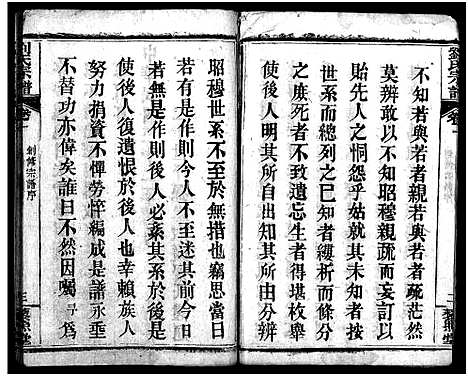 劉氏宗譜
卷一
不知若與若者親若與若者疏茫然
莫辨敢以不知昭穆親疏而妄擬議
貽先人之恫怨乎姑就其未知者按
世系而總列之已知者縷析而條分
之庶死者不致遺忘生者得堪枚舉
使後人明其所自出知其所由分辨
二
昭穆世系於無措也竊思當日
若有是作則今人不至迷其前今日
若無是作則後人必紊其系於
使後人復遺恨於後也幸賴族人
努力捐資不憚勞悴編成是譜永垂
不替功亦偉矣誰曰不然因囑予爲
劉氏宗譜
卷一
創修宗譜序
三
藜照堂